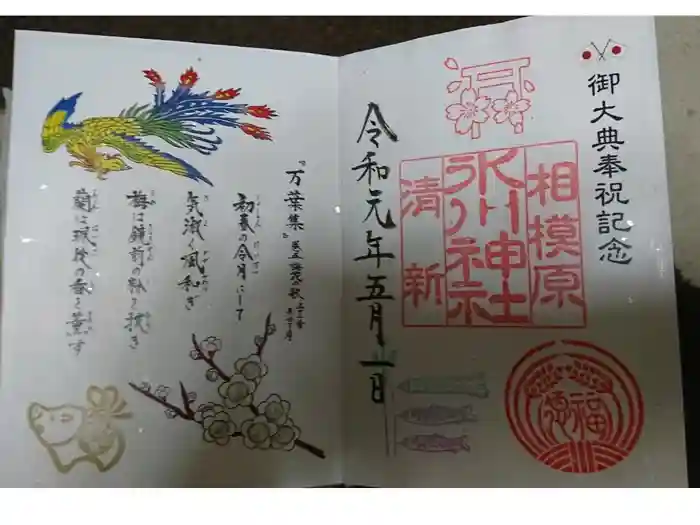 御大典奉祝記念
相模原
氷川神社
清新
令和元年五月一日
福徳
『万葉集』巻五 梅花の歌 三十二首
初春の令月にして
気淑く風和ぎ
梅は鏡前の粉を披き
蘭は珮後の香を薫す